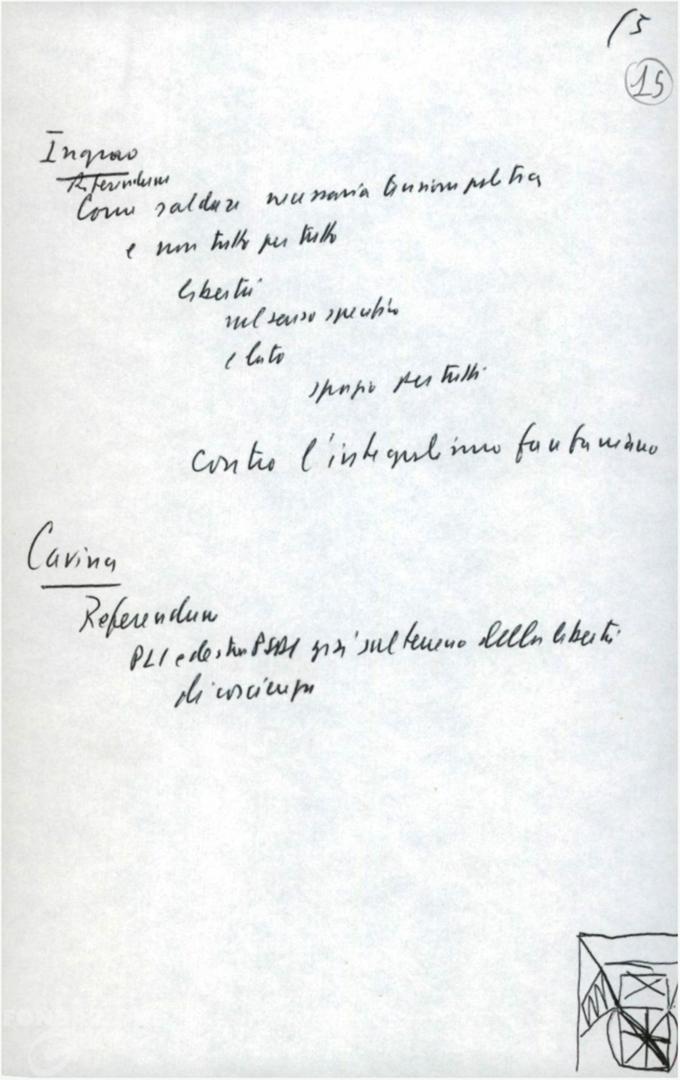 15
15
Ingrao
Referendum
Come saldare necessaria tensione politica
e non tutto per tutto
libertà
nel senso specifico
e lato
spazio per tutti
contro l'integralismo fanfaniano
Cavina
Referendum
PLI e destra PSDI già sul terreno della libertà
di coscienza